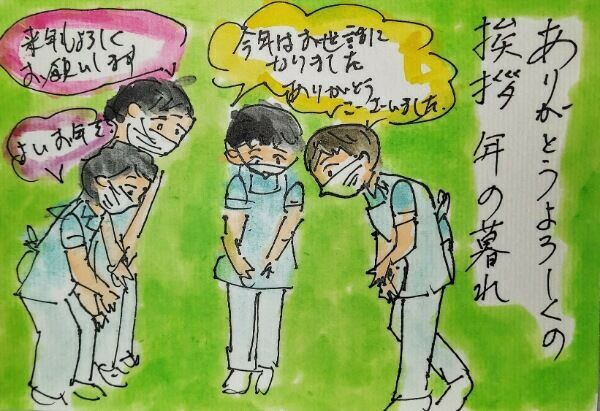 ありがとうよろしくの
挨拶 年の暮れ
今年はお世話に
なりました
ありがとう
ございました
来年もよろしく
お願いします
よいお年を